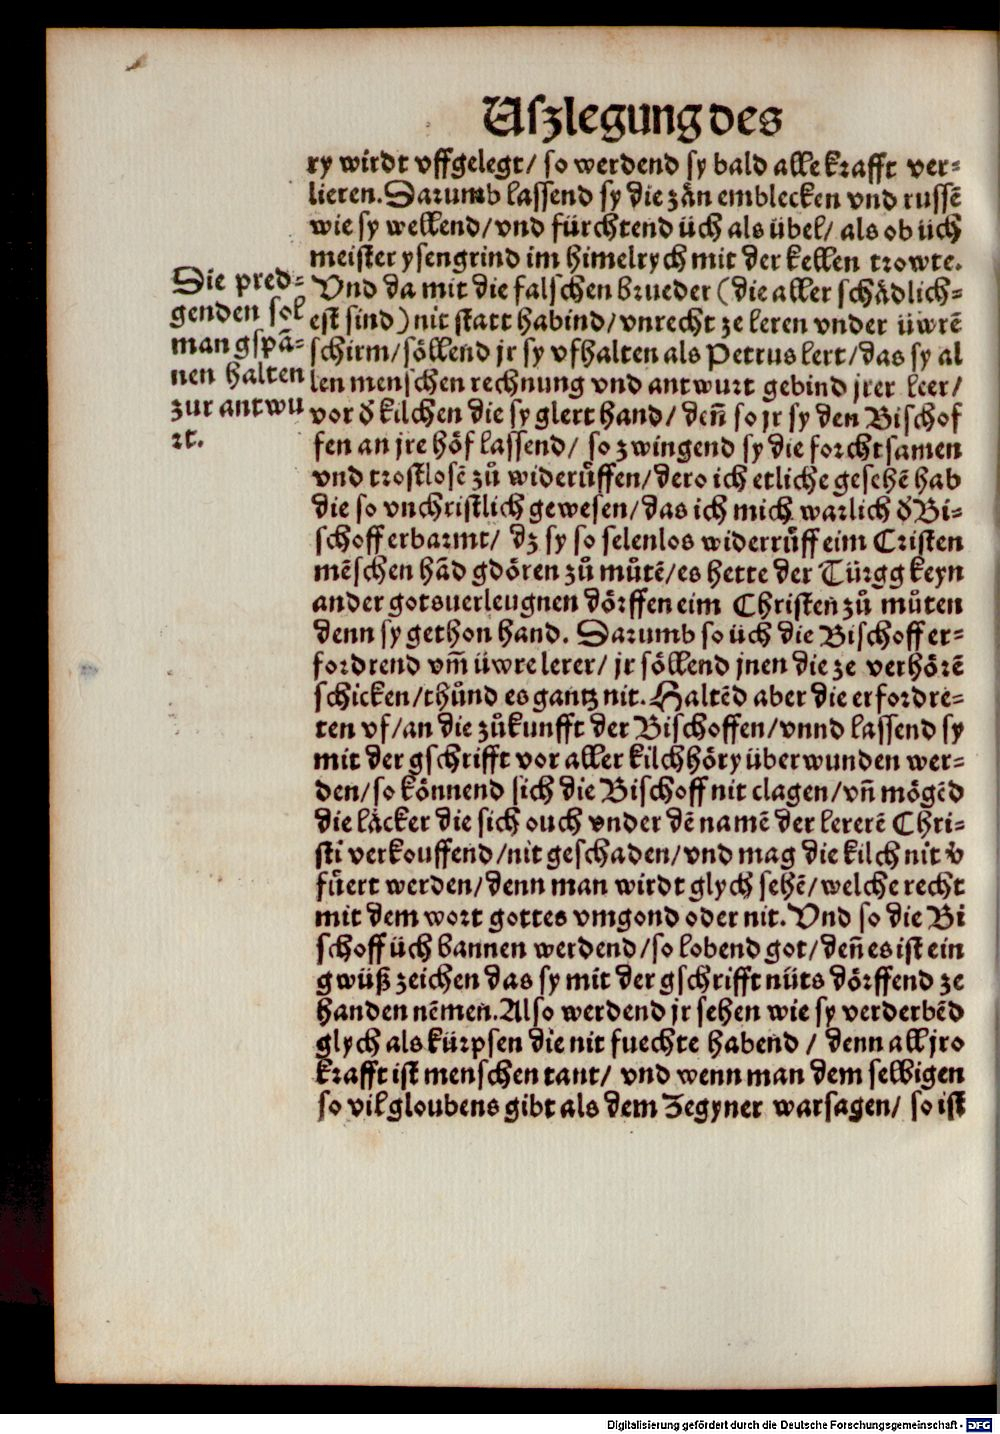 Uſzlegung des
ry wirdt vffgelegt/ so werdend sy bald alle krafft ver⸗
lieren. Darumb lassend sy die zän emblecken vnd russē
wie sy wellend/vnd fürchtend üch als übel/ als ob üch
meister ysengrind im himelrych mit der kellen trowte.
Vnd da mit die falschen brueder (die aller schädlich⸗
est sind) nit statt habind/vnrecht ze leren vnder üwrē
schirm/söllend jr sy vfhalten als Petrus lert/das sy al
len menschen rechnung vnd antwurt gebind jrer leer/
vor d̕ kilchen die sy glert hand/ deñ so jr sy den Bischof
fen an jre höf lassend/ so zwingend sy die forchtsamen
vnd trostlosē zů widerüffen/dero ich etliche gesehē hab
die so vnchristlich gewesen/das ich mich warlich d̕ Bi⸗
schoff erbarmt/ dz sy so selenlos widerrůff eim Cristen
mēschen hād gdören zů můtē/es hette der Türgg keyn
ander gotsuerleugnen dörffen eim Christen zů můten
denn sy gethon hand. Darumb so üch die Bischoff er⸗
fordrend vm̄ üwre lerer/ jr söllend jnen die ze verhörē
schicken/thůnd es gantz nit. Haltēd aber die erfordre⸗
ten vf/an die zůkunfft der Bischoffen/vnnd lassend sy
mit der gschrifft vor aller kilchhöry überwunden wer⸗
den/so könnend sich die Bischoff nit clagen/vñ mögēd
die läcker die sich ouch vnder dē namē der lererē Chri⸗
sti verkouffend/nit geschaden/vnd mag die kilch nit v̕
füert werden/denn man wirdt glych sehē/welche recht
mit dem wort gottes vmgond oder nit. Vnd so die Bi
schoff üch bannen werdend/so lobend got/deñ es ist ein
gwüß zeichen das sy mit der gschrifft nüts dörffend ze
handen nēmen. Also werdend jr sehen wie sy verderbēd
glych als kürpsen die nit fuechte habend / denn all jro
krafft ist menschen tant/ vnd wenn man dem selbigen
so vil gloubens gibt als dem Zegyner warsagen/ so ist
Die pred⸗
genden sol
man gspā⸗
nen halten
zur antwu
rt.
Digitalisierung gefördert durch die Deutsche Forschungsgemeinschaft - DFG